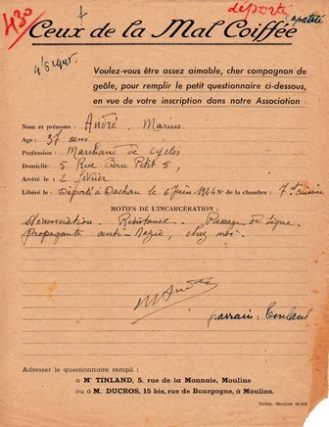 430
déporté
Ceux de la Mal Coiffée
Voulez-vous être assez aimable, cher compagnon de
geôle, pour remplir le petit questionnaire ci-dessous,
en vue de votre inscription dans notre Association :
Nom et prénoms : André Marius
Age : 37 ans
Profession : Marchand de cycles
Domicile : 5 Rue Petit 5,
Arrêté le : 2 février
Libéré le : Déporté à Dachau le 6 juin 1944 N° de la chambre : 7
MOTIFS DE L'INCARCÉRATION :
Dénonciation. Résistance. Passage de ligne
propagante anti-Nazie, chez moi.
M André
parrain : Tinland
Adresser le questionnaire rempli :
à Mr TINLAND, 5, rue de la Monnaie, Moulins
ou à M. DUCROS, 15 bis, rue de Bourgogne, à Moulins.